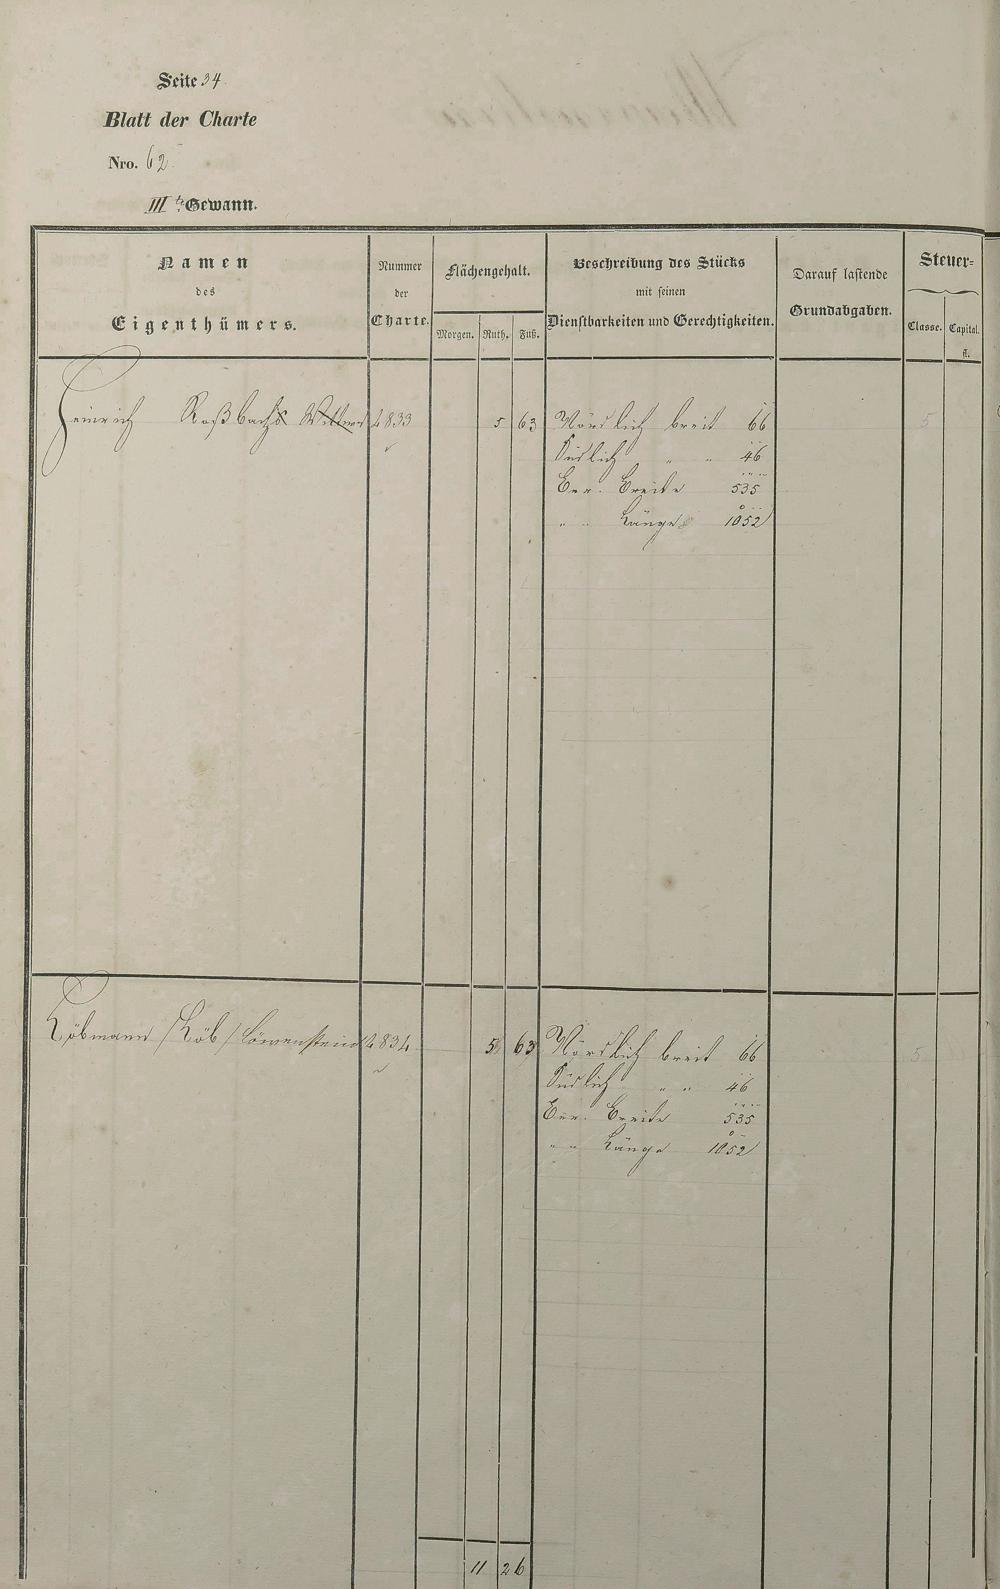 Seite 34
Blatt der Charte
Nro. 62
III te Gewann.
Namen
des
Eigenthümers.
Nummer
der
Charte.
Flächengehalt.
Morgen. Ruth. Fuß.
Beschreibung des Stücks
mit seinen
Dienstbarkeiten und Gerechtigkeiten.
Darauf lastende
Grundabgaben.
Steuer=
Classe. Capital.
fl.
Heinrich Roßbachs Wittwe 4833 5 63 Nördlich breit 66 5
Südlich " " 46
Red. Breite 535
" " Länge 1052
Löbmann /Löb/ Löwenstein 4834 5 63 Nördlich breit 66 5
Südlich " " 46
Red. Breite 535
" " Länge 1052
11 26